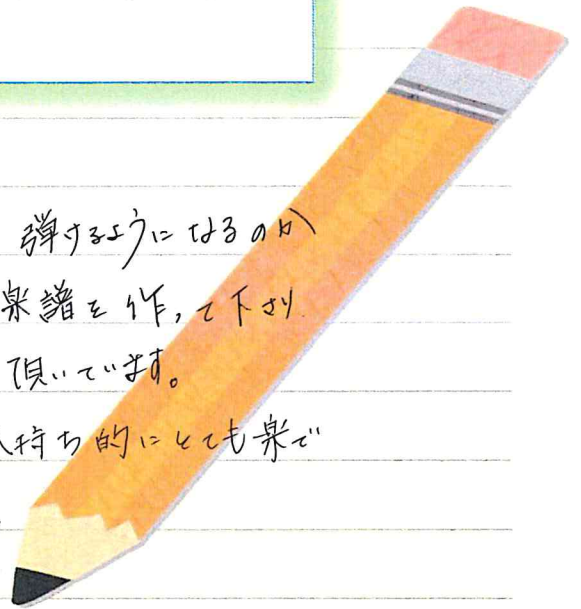 弾けるようになるのか
楽譜を作って下さり
頂いています。
持ち的にとても楽で